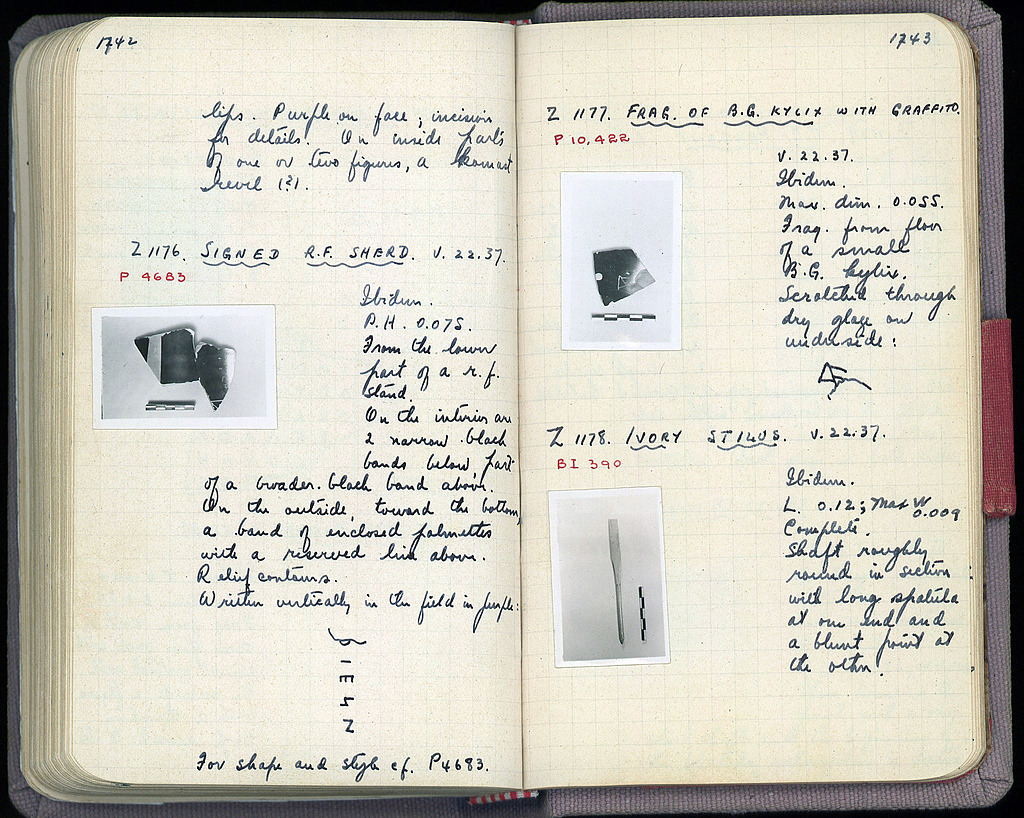 1742
lips. Purple on face; incision
for details. On inside parts
of one or two figures, a komast
revel (?).
Z 1176. SIGNED R.F. SHERD. V. 22.37.
P 4683
Ibidem.
P.H. 0.075.
From the lower
part of a r.f.
stand.
On the interior are
2 narrow black
bands below, part
of a broader black band above.
On the outside, toward the bottom,
a band of enclosed palmettes
with a reserved line above.
Relief contours.
Written vertically in the field in purple:
I
E
N
For shape and style cf. P4683.
1743
Z 1177. FRAG. OF B.G. KYLIX WITH GRAFFITO.
P 10,422
V. 22.37.
Ibidem.
Max. dim. 0.055.
Frag. from floor
of a small
B.G. kylix.
Scratched through
dry glaze on
underside:
Z 1178. IVORY STILUS. V.22.37.
BI 390
Ibidem.
L. 0.12; Max W
0.009
Complete.
Shaft roughly
round in section
with long spatula
at one end and
a blunt point at
the other.